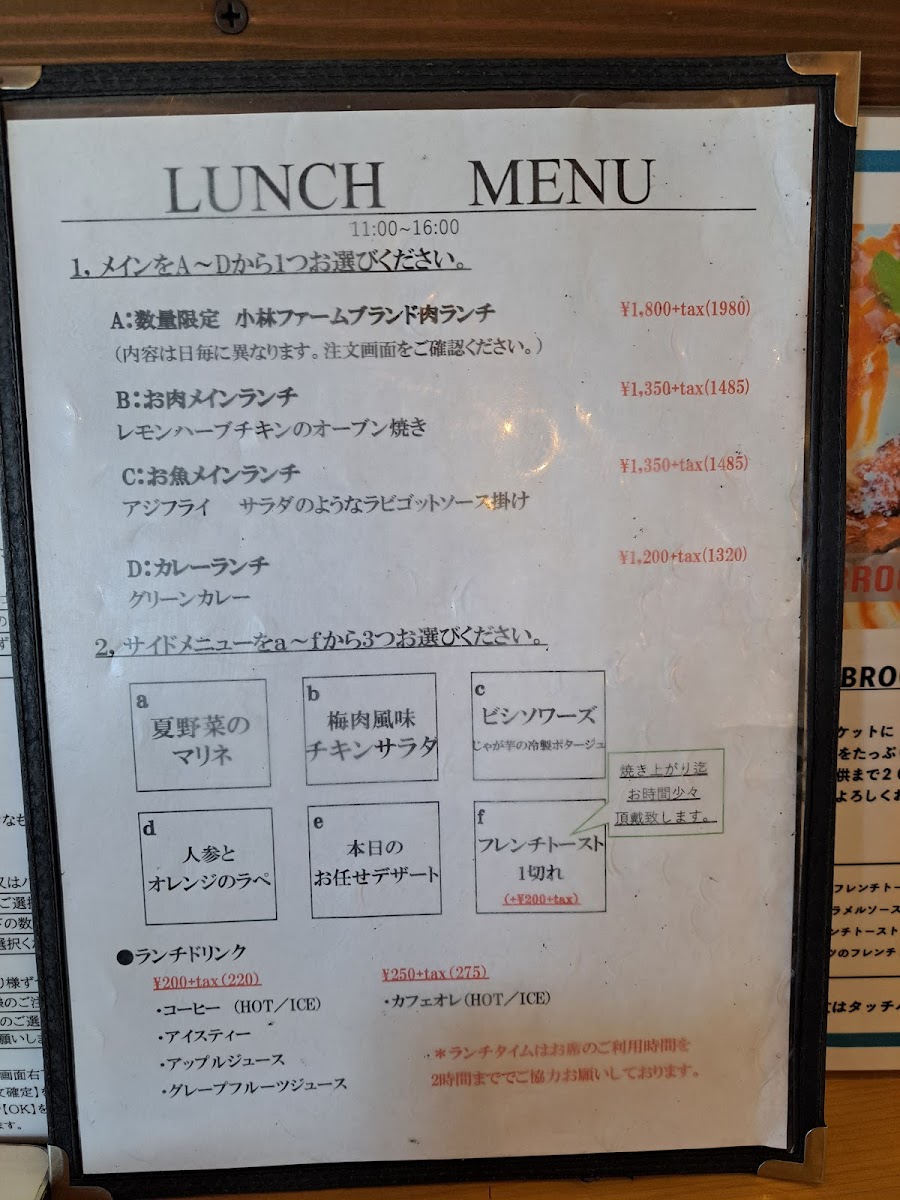 LUNCH MENU
11:00~16:00
1, メインをA～Dから1つお選びください。
A:数量限定 小林ファームブランド肉ランチ ¥1,800+tax(1980)
(内容は日毎に異なります。注文画面をご確認ください。)
B:お肉メインランチ ¥1,350+tax(1485)
レモンハーブチキンのオーブン焼き
C:お魚メインランチ ¥1,350+tax(1485)
アジフライ サラダのようなラビゴットソース掛け
D:カレーランチ ¥1,200+tax(1320)
グリーンカレー
2, サイドメニューをa～fから3つお選びください。
a
夏野菜の
マリネ
b
梅肉風味
チキンサラダ
c
ビシソワーズ
じゃが芋の冷製ポタージュ
焼き上がり迄
お時間少々
頂戴致します。
d
人参と
オレンジのラペ
e
本日の
お任せデザート
f
フレンチトースト
1切れ
(+¥200+tax)
●ランチドリンク
¥200+tax(220)
・コーヒー (HOT/ICE)
・アイスティー
・アップルジュース
・グレープフルーツジュース
¥250+tax(275)
・カフェオレ(HOT/ICE)
*ランチタイムはお席のご利用時間を
2時間まででご協力お願いしております。
BRO
ケットに
をたっぷ
供まで2
よろしくお
フレンチト
ラメルソース
ンチトースト
ツのフレンチ
はタッチ
又はハ
ご選
下の数
選択く
り様ず
のご注
のご選
願いしま
画面右
文確定】
【OK】を
ます。